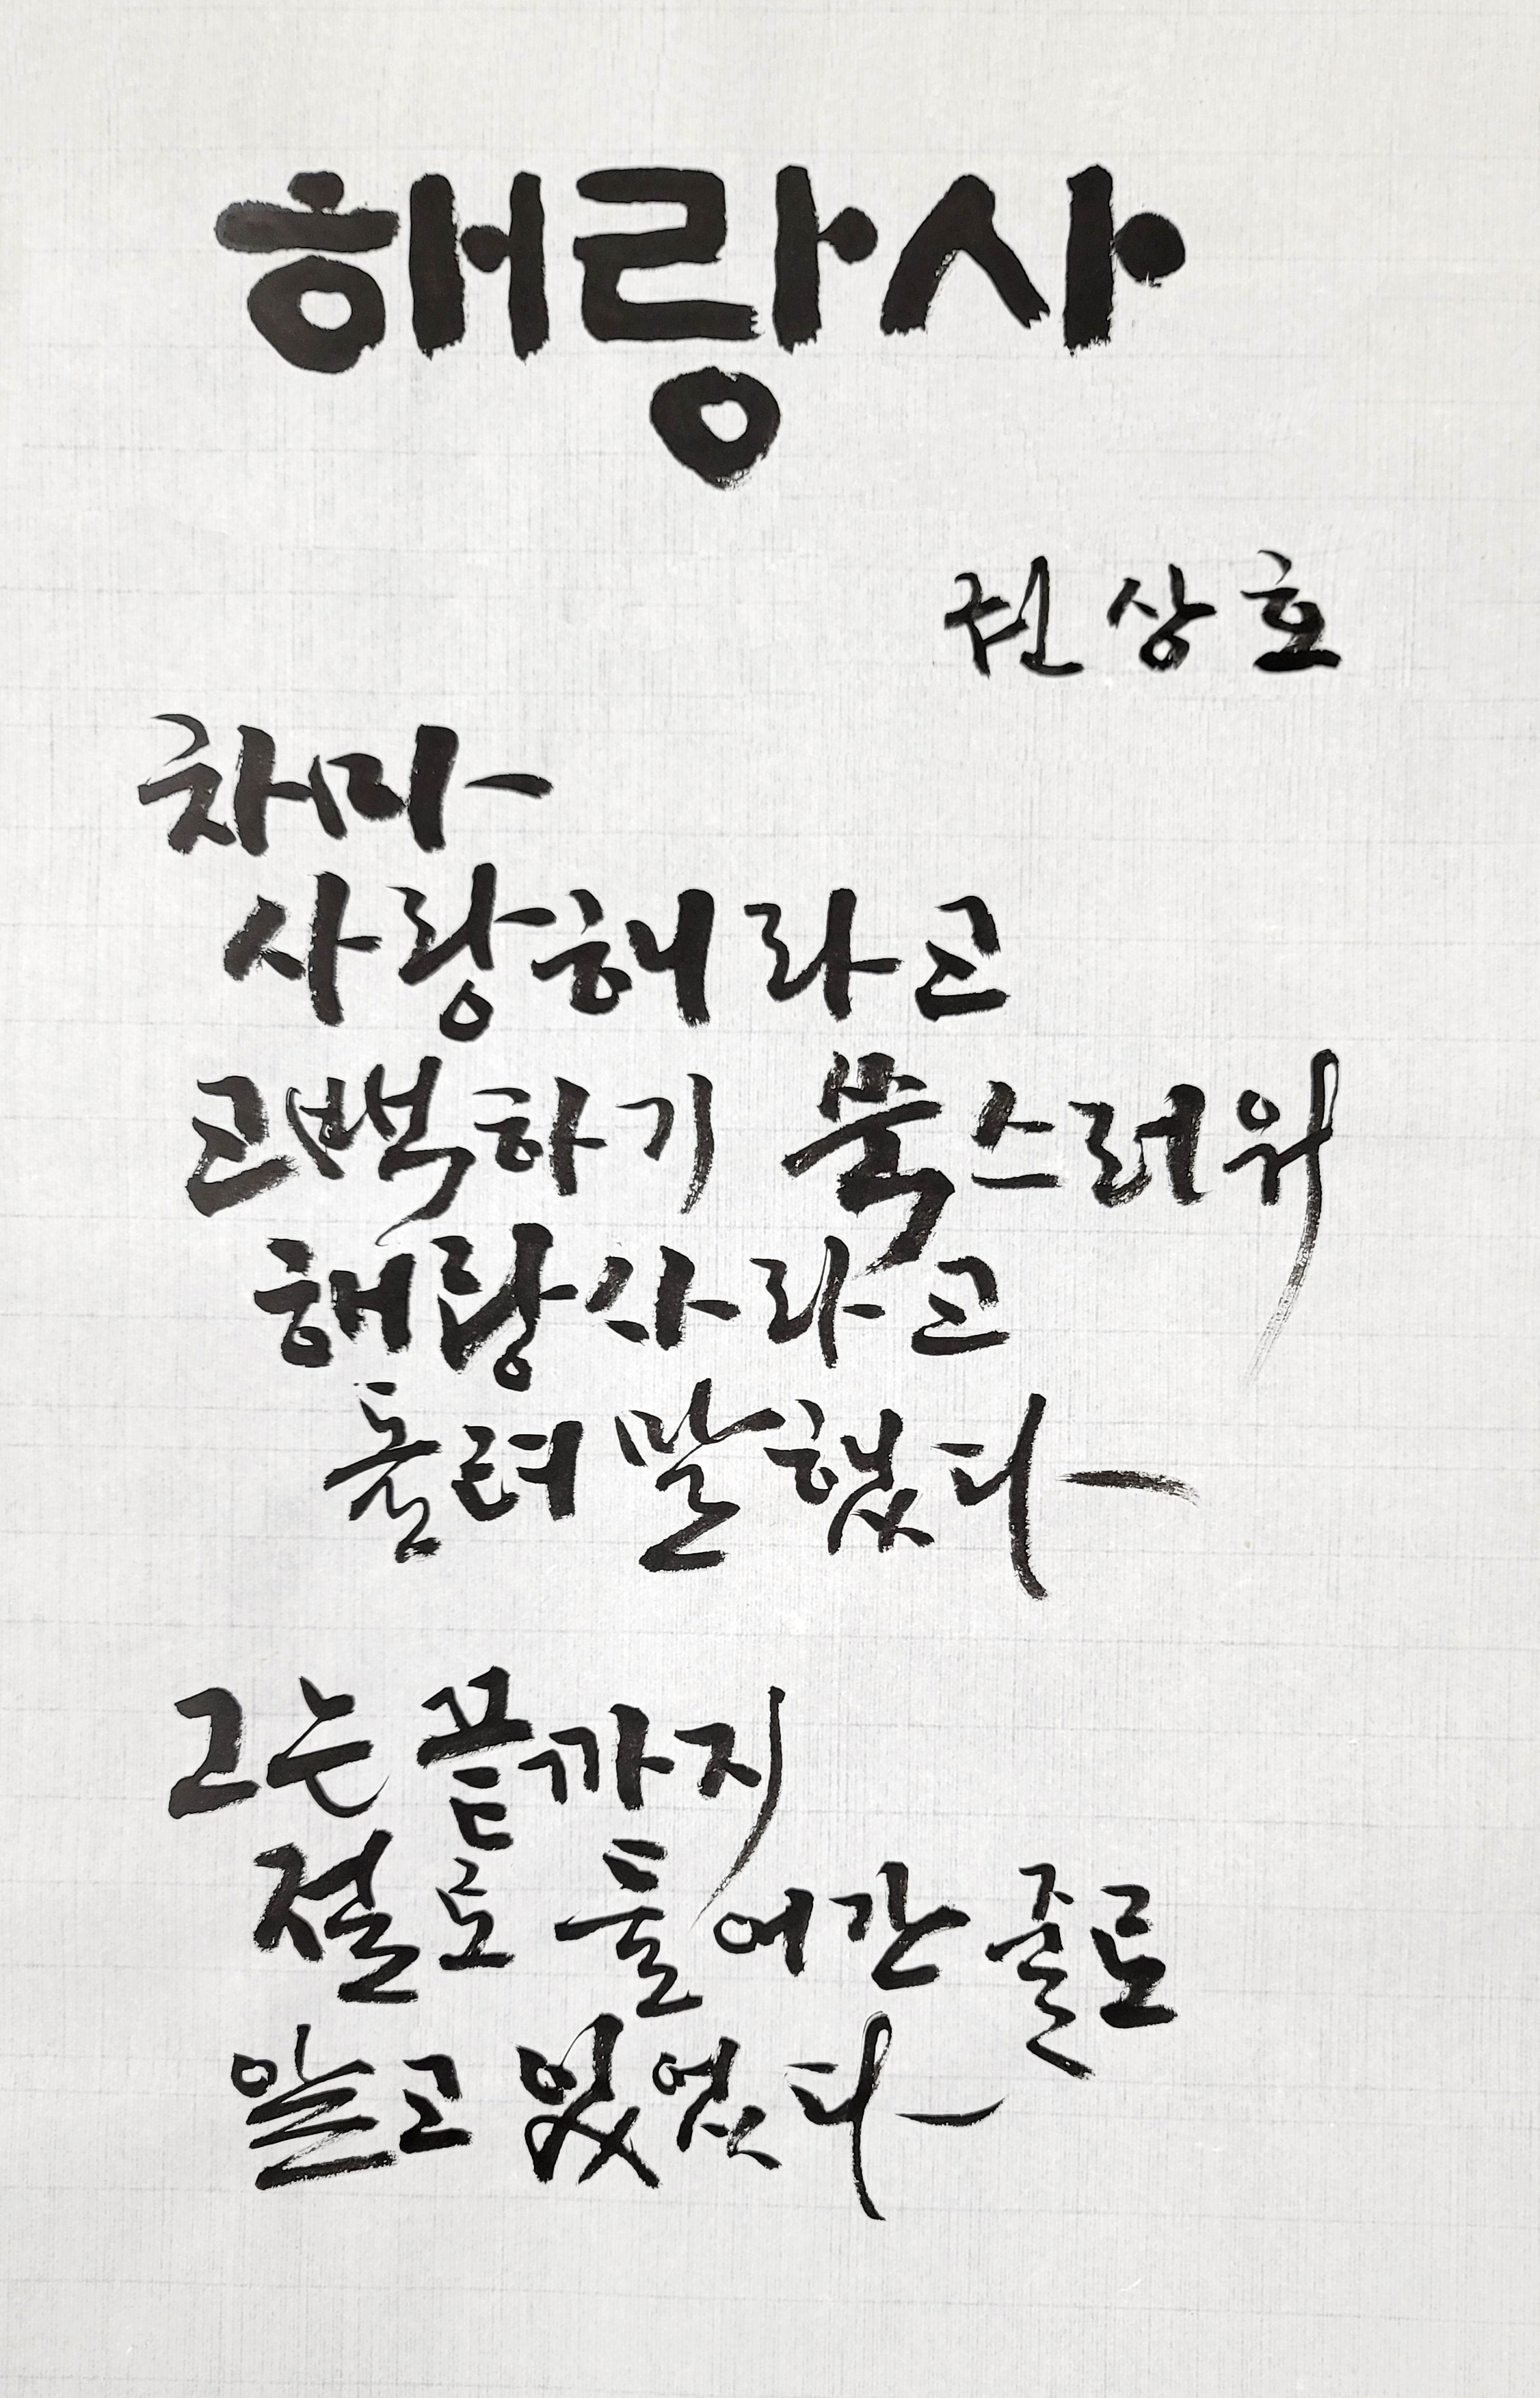 해랑사
권상호
차마
사랑해라고
고백하기 쑥스러워
해랑사라고
돌려 말했다
그는 끝까지
절로 돌아간 줄로
알고 있었다